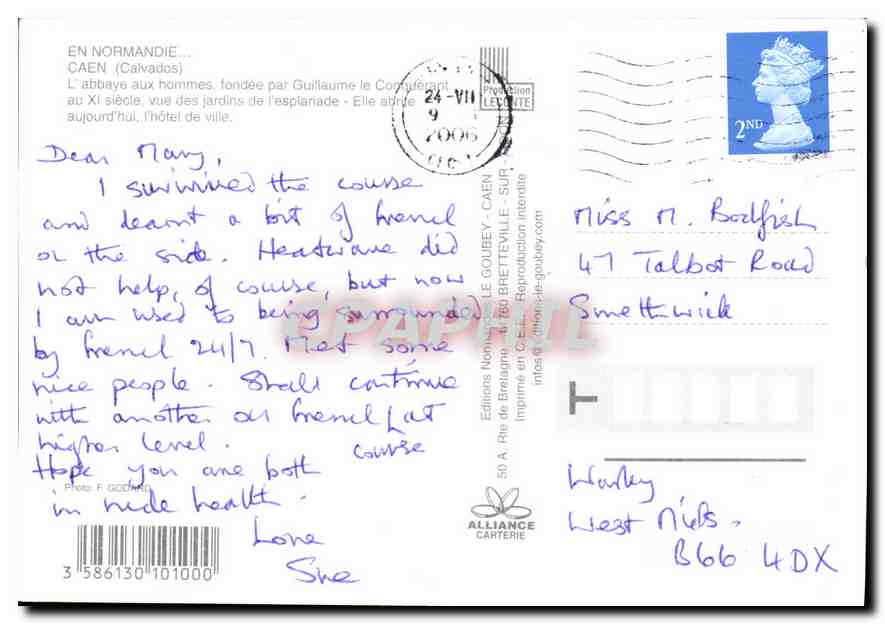 EN NORMANDIE...
CAEN (Calvados)
L'abbaye aux hommes, fondée par Guillaume le Conquérant
au XI siècle, vue des jardins de l'esplanade - Elle abrite
aujourd'hui, l'hôtel de ville.
Dear Mary,
I survived the course
and learnt a bit of french
on the side. Heatwave did
not help, of course, but now
I am used to being surrounded
by french 24/7. Met some
nice people. Shall continue
with another on french at
higher level. course
Hope you are both
in rude health.
Love
Sue
Photo: F. GODARD
3 586130 101000
24-VII
2006
Production
LECONTE
2ND
Editions Normandes LE GOUBEY - CAEN
50 A, Rte de Bretagne - 14760 BRETTEVILLE - SUR -
Imprimé en C.E.E. Reproduction interdite
infos@editions-le-goubey.com
ALLIANCE
CARTERIE
CPAPHIL
Miss M. Bodfish
47 Talbot Road
Smethwick
T
Warley
West Mids.
B66 4DX